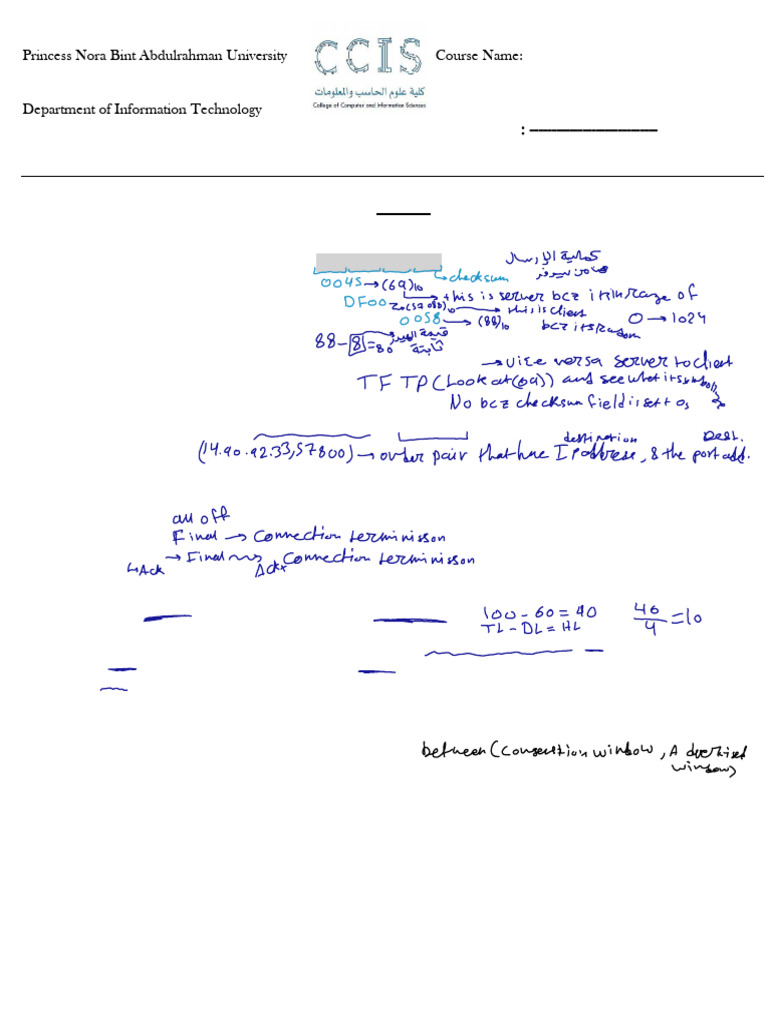 Princess Nora Bint Abdulrahman University
CCIS
Course Name:
كلية علوم الحاسب والمعلومات
College of Computer and Information Sciences
Department of Information Technology
: ----------------------
checksum
0045 → (69)10
DF00
this is server bcz it in range of
0 → 1024
this is client
0058 → (88)10
bcz its
88 - 8 = 80
قيمة
ثابتة
→ vice versa server to client
TFTP (Look at (69)) and see what its
No bcz checksum field is set to 0,
destination Dest.
(14.90.92.33,57800) → order pair that have IP address, & the port add.
all off
Final → Connection terminisson
→ Final Connection terminisson
↳ Ack Ack+
100 - 60 = 40
TL - DL = HL
40/4 = 10
between (Consenstion window, Advertised
window)